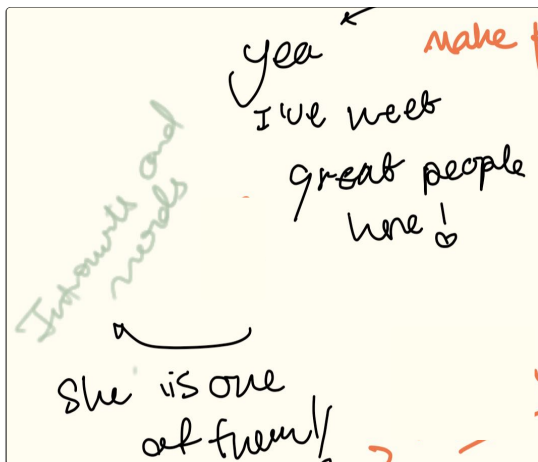 yea
I've meet
great people
here!
Make
Introverts and
nerds
She is one
of them!!